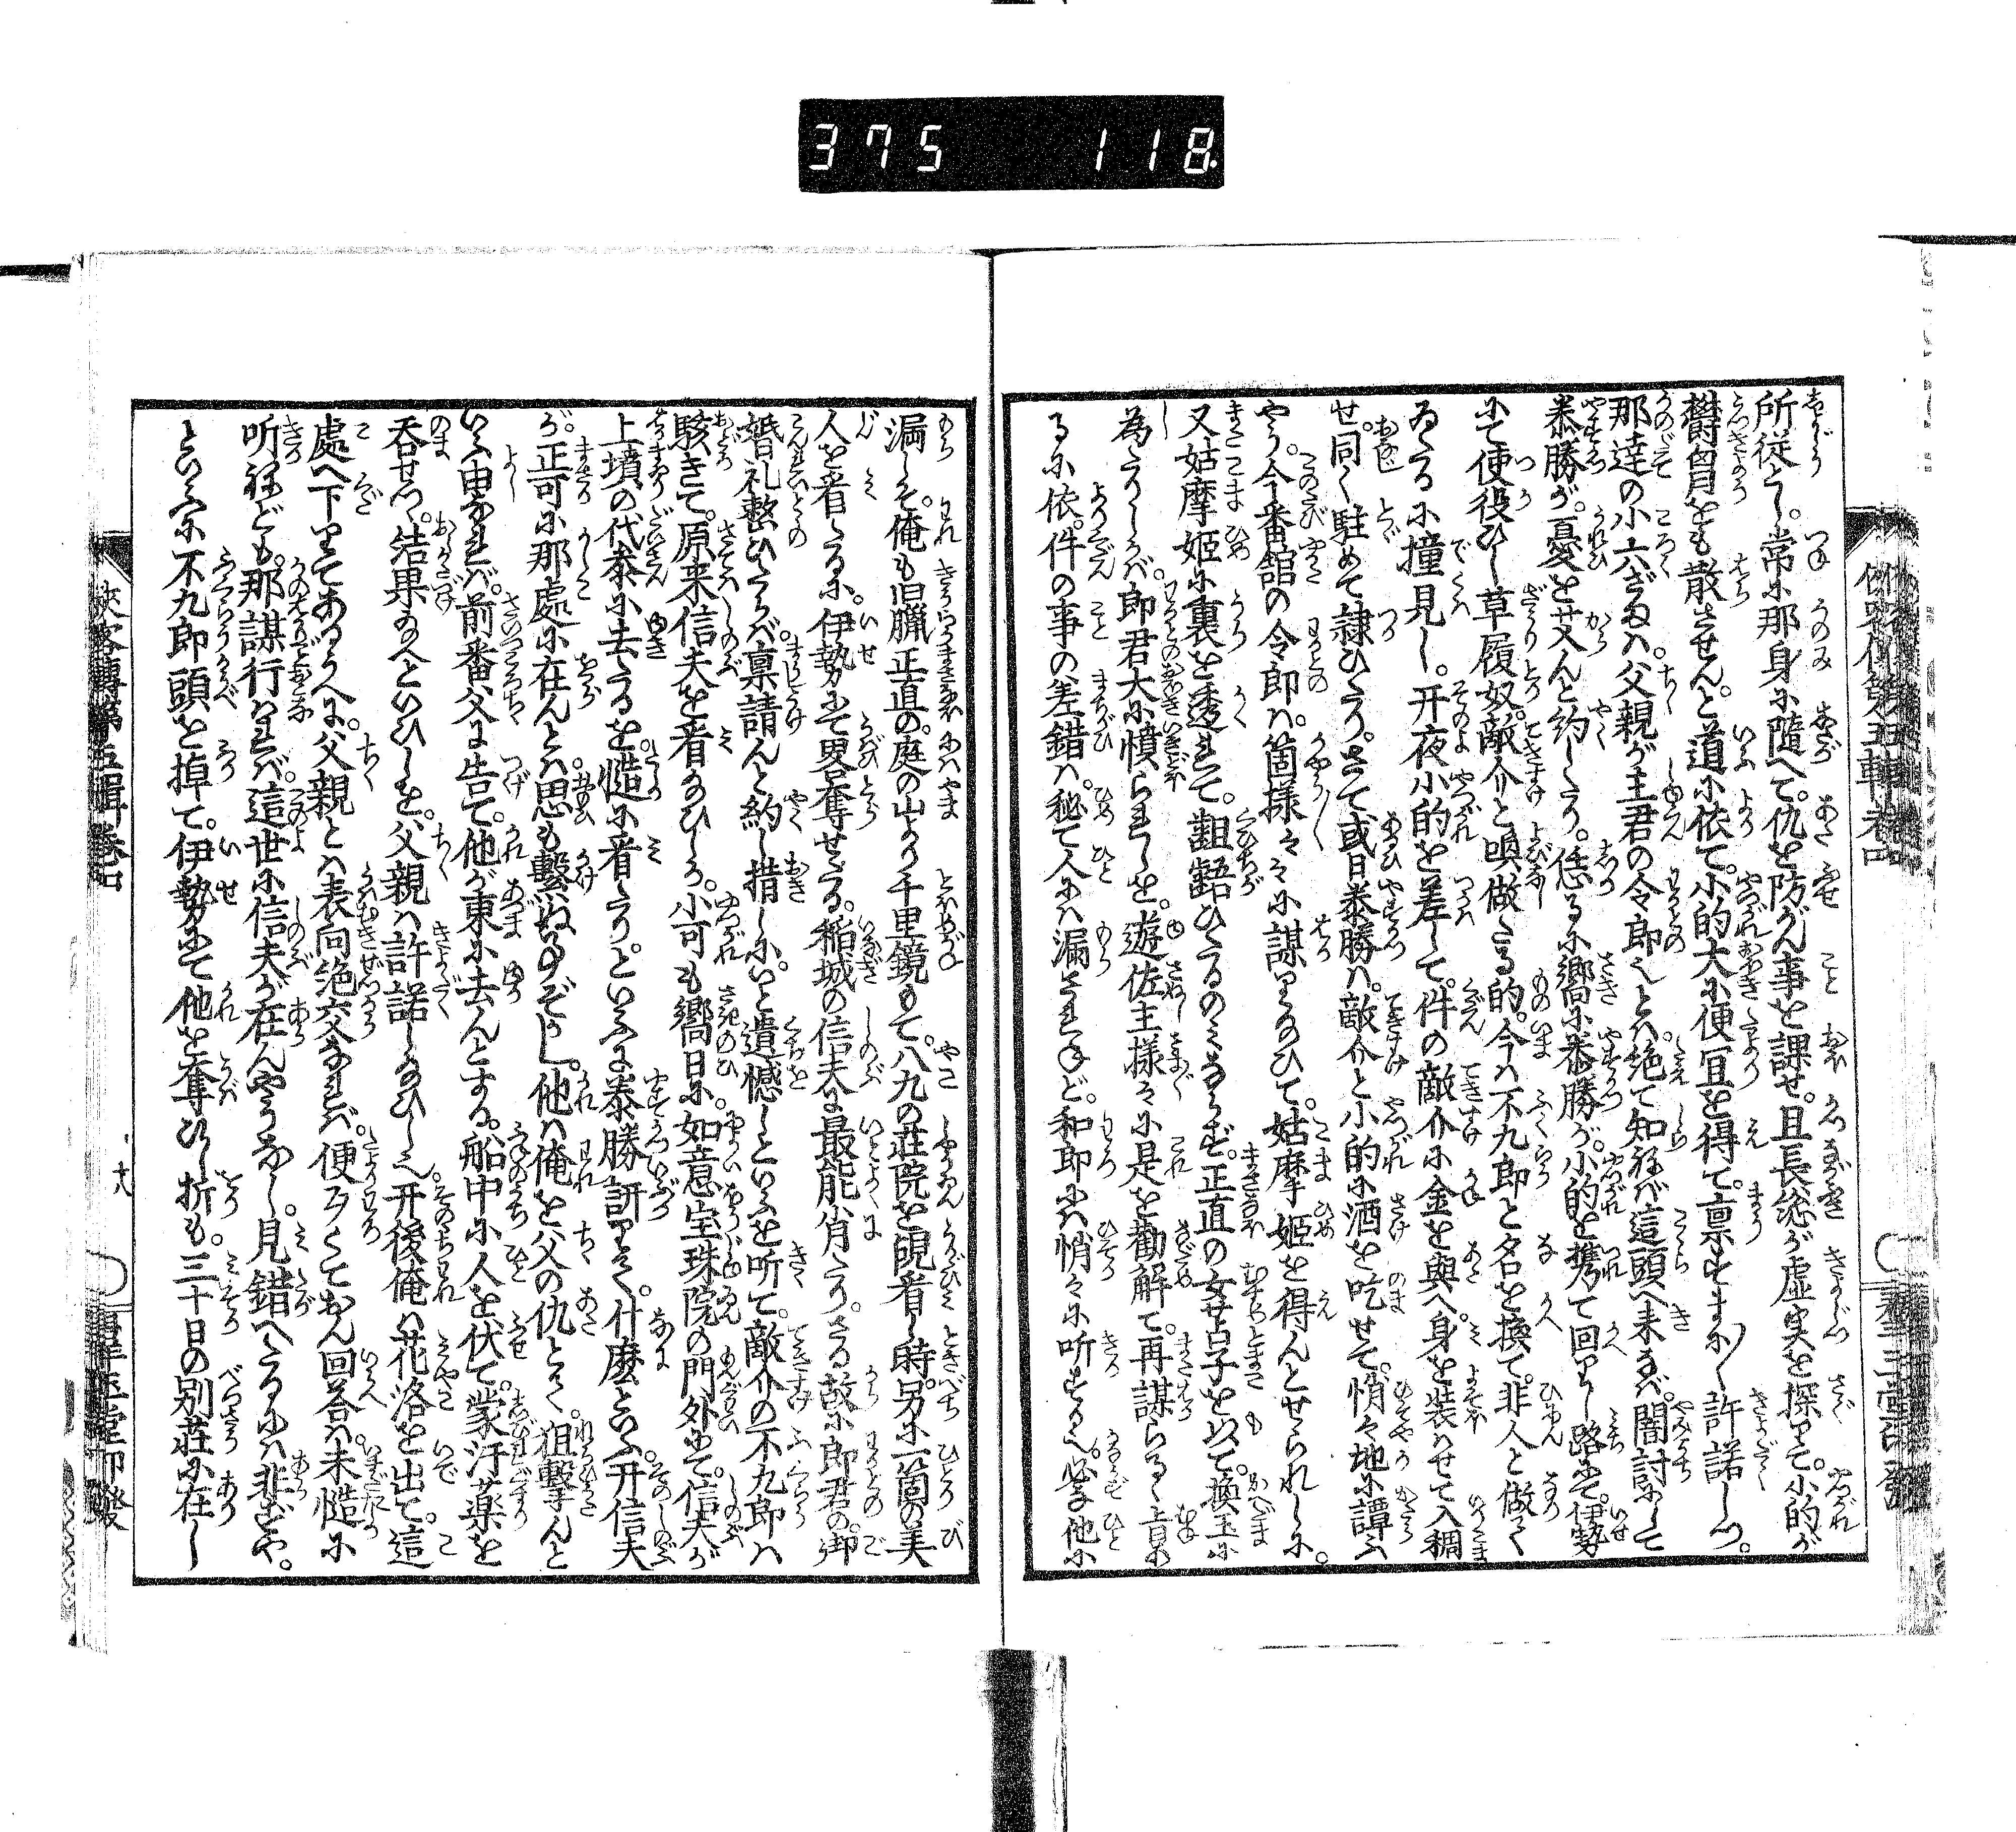 375 118
所従とし。常に那身に随へて。仇を防がん事を課せ。且長総が虚実を探りて。小的が
欝胸をも散させん。と道に依て。小的大に便宜を得て。禀すまに〳〵許諾しつ。
那達の小六ぎぬハ。父親が主君の令郎也とハ。絶て知ねバ這頭へ来なバ。闇討にして
泰勝が。憂を艾んと約したり。恁るに嚮に泰勝が。小的を携て回りし路にて。伊勢
にて使役ひし草履奴。敵介と喚做たる的。今ハ不九郎と名を換て。非人と做て
ゐたるに撞見し。开夜小的を差して。件の敵介に金を与へ。身を装ハせて入稠
せ。同く駐めて隷ひたり。さて或日泰勝ハ。敵介と小的に酒を吃せて。悄々地に譚ふ
やう。今番舘の令郎ハ。箇様々々に謀り給ひて。姑摩姫を得んとせられしに。
又姑摩姫に裏を透れて。齟齬ひたるのミならず。正直の女せ占子を以て。換玉に
為たりしかバ。郎君大に憤らせ給ひしを。遊佐主様々に是を勧解て。再謀らるゝ旨あ
るに依。件の事の差錯ハ。秘て人にハ漏さねど。和郎にハ悄々に听するへ。必予他に
漏しそ。俺も旧臘正直の。庭の山より千里鏡もて。八九の荘院を覘看し時。另に一箇の美
人を看たるに。伊勢にて畧奪せたる。稲城の信夫に最能肖たり。さる故に郎君の御
婚礼整ひたらバ。禀請んと約し措しに。いと遺憾しといふを听て。敵介の不九郎ハ
駭きて。原来信夫を看給ひしか。小可も嚮日に。如意宝珠院の門外にて。信夫が
上墳の代参に去たるを。慥に看たり。といふに泰勝訝りて。什麽といふ。开信夫
が。正可に那處に在んとハ。思も繋ぬ事ぞかし。他ハ俺を父の仇とて。狙撃んと
いふ由なれバ。前番父に告て。他が東に去んとする。船中に人を伏て。蒙汗薬を
呑せつ。結果給へといひしを。父親ハ許諾し給ひし也。开後俺ハ花洛を出て。這
處へ下りてありけるに。父親とハ表向絶交なれバ。便りなくておん回答ハ。未慥に
听ねども。那謀行ハれなバ。這世に信夫が在んやうなし。見錯へたるにハ非ずや。
といふに不九郎頭を掉て。伊勢にて他を奪ひし折も。三十日の別荘に在し
侠客傳第五輯巻四
十八